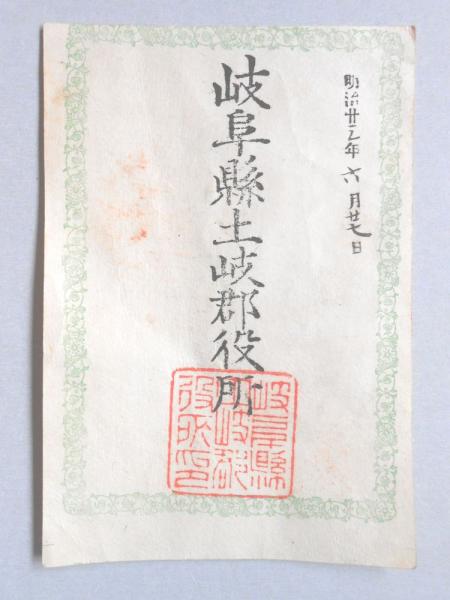 明治廿二年六月廿七日
岐阜縣土岐郡役所
岐阜縣
土岐郡
役所印